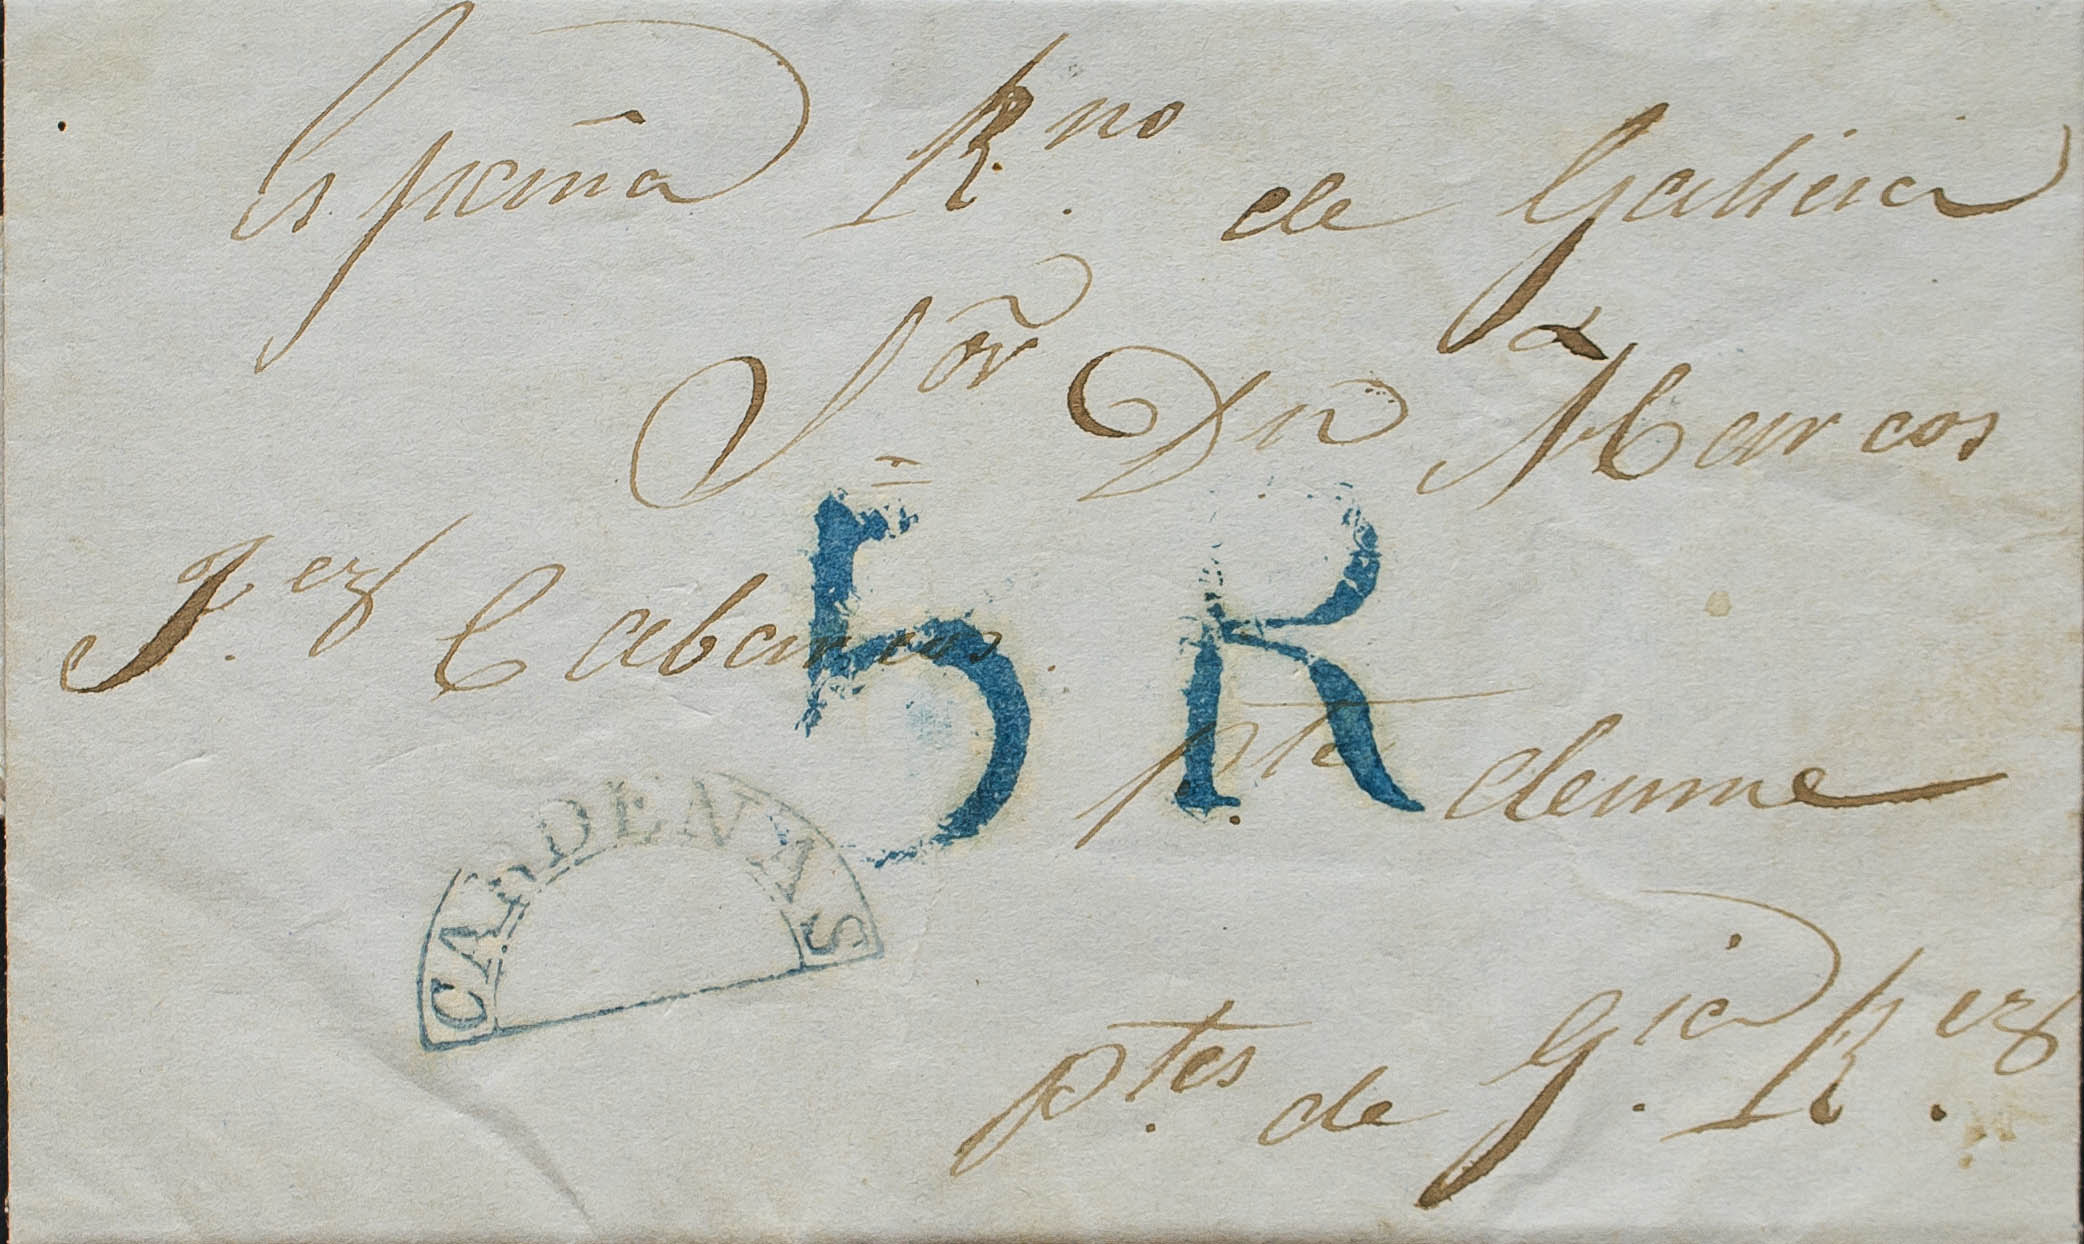 España R.no de Galicia
Sor Dn Marcos
J.ez Cabarcos.
5 R
p.te deume
CARDENAS
p.tes de G.ia R.ez